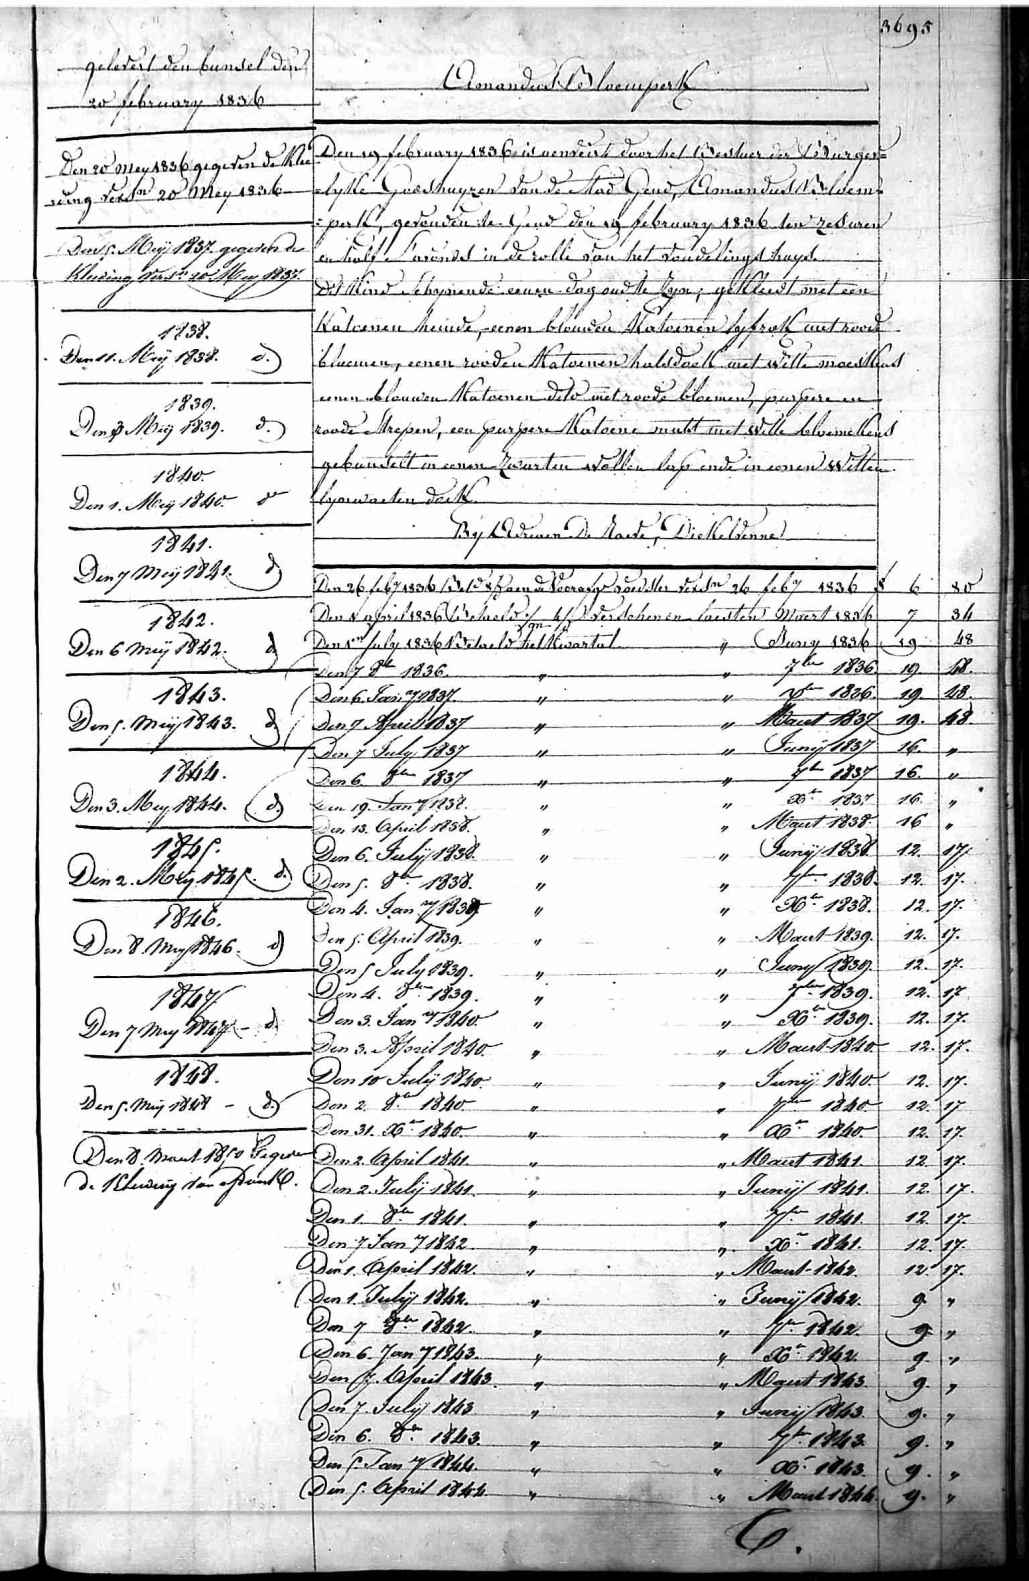 3695
gelevert den bunsel den
20 february 1836
Den 20 Mey 1836 gegeven de Klee
-ding versn 20 Mey 1836
Den 5. Meij 1837. gegeven de
Kleeding versn 20 Mey 1837.
1838.
Den 11. Meij 1838. d.
1839.
Den 3 Meij 1839. d.
1840.
Den 1. Meij 1840. do
1841.
Den 7 Meij 1841. d
1842.
Den 6 Meij 1842. d
1843.
Den 5. Meij 1843. d.
1844.
Den 3. Mey 1844. d.
1845.
Den 2. Meij 1845. d.
1846.
Den 8. Mey 1846. d
1847
Den 7 Mey 1847 - d.
1848.
Den 5. Meij 1848 - d.
Den 8. Maert 1850 Gegeven
de Kleeding van
Amandus Bloemperk
Den 19 february 1836 is aenveird door het Bestier der Burger=
=lyke Godshuyzen van de stad Gend, Amandus Bloem=
=perk, gevonden te Gend den 19 february 1836 ten zes uren
en half s'avonds in de rolle van het vondelings huys.
Dit Kind schynende eenen dag oud te zyn; gekleedt met een
Katoenen hemde, eenen blauwen Katoenen lyfrok met roode
bloemen, eenen rooden Katoenen halsdoek met witte moeskens
eenen blauwen Katoenen dito met roode bloemen, purpere en
roode strepen, een purpere Katoene muts met witte bloemekens
gebunselt in eenen zwarten wollen lap ende in eenen witten
lynwaeten doek.
By Adriaen De Raeve, Dickelvenne
Den 26 feby 1836 voedster versn 26 feby 1836 f 6 80
Den 4 April 1836 Betaeld verschenen laesten Maert 1836 7 34
Den 1en July 1836 Betaeld het Kwartael " Juny 1836 19 48
Den 7 8br 1836. " " 7ber 1836. 19 48.
Den 6. Jany 1837. " " Xbr 1836. 19 48.
Den 7. April 1837 " " Maert 1837 19. 48.
Den 7 July 1837 " " Junij 1837 16. "
Den 6. 8br 1837 " " 7br 1837 16. "
Den 19. Jany 1838. " " Xbr 1837. 16. "
Den 13. April 1838. " " Maert 1838. 16 "
Den 6. Julij 1838. " " Junij 1838. 12. 17.
Den 5. 8br 1838. " " 7br 1838. 12. 17.
Den 4. Jany 1839 " " Xbr 1838. 12. 17.
Den 5. April 1839. " " Maert 1839. 12. 17.
Den 5 July 1839. " " Juny 1839. 12. 17.
Den 4. 8br 1839. " " 7ber 1839. 12. 17
Den 3. Jany 1840. " " Xbr 1839. 12. 17.
Den 3. April 1840. " " Maert 1840 12. 17.
Den 10 Julij 1840. " " Junij 1840 12. 17.
Den 2. 8br 1840. " " 7br 1840. 12. 17
Den 31. Xbr 1840. " " Xbr 1840. 12. 17.
Den 2. April 1841. " " Maert 1841 12. 17.
Den 2. Julij 1841. " " Junij 1841. 12. 17.
Den 1. 8br 1841. " " 7br 1841 12. 17.
Den 7 Jany 1842 " " Xbr 1841. 12. 17.
Den 1. April 1842. " " Maert 1842. 12. 17.
Den 1. Julij 1842. " " Junij 1842. 9. "
Den 7 8br 1842. " " 7br 1842. 9. "
Den 6. Jany 1843. " " Xbr 1842. 9. "
Den 7. April 1843. " " Maert 1843 9. "
Den 7. Julij 1843 " " Junij 1843 9. "
Den 6. 8br 1843. " " 7br 1843. 9. "
Den 5. Jany 1844. " " Xbr 1843. 9. "
Den 5. April 1844 " " Maert 1844 9. "